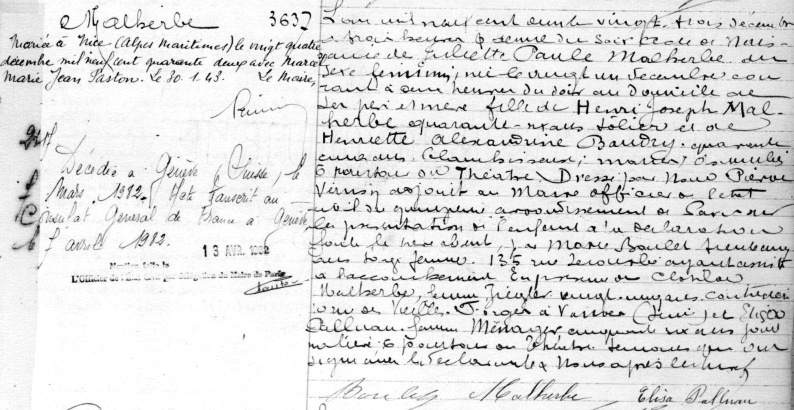 Malherbe
3637
Mariée à Nice (Alpes Maritimes) le vingt quatre
décembre mil neuf cent quarante deux avec Marcel
Marie Jean Gaston. Le 30.1.43. Le Maire,
Décédée à Genève (Suisse), le
mars 1982. Acte transcrit au
Consulat Général de France à Genève
le 7 avril 1982.
13 AVR. 1982
Mention faite le
L'Officier de l'état civil par délégation du Maire de Paris
L'an mil neuf cent vingt trois décembre
à trois heures demie du soir acte de Nais-
sance de Juliette Paule Malherbe du
sexe féminin, née le vingt un décembre cou
rant à une heure du soir au domicile de
ses père et mère fille de Henri Joseph Mal-
herbe quarante six ans tôlier et de
Henriette Alexandrine Baudry quarante
cinq ans, mariés domiciliés
6 du Théâtre. Dressé par Nous Pierre
adjoint au Maire officier de l'état
civil du quinzième arrondissement de Paris sur
la présentation de l'enfant et la déclaration
faite le père absent, par Marie Boulet
ans sage femme. 135 rue Lecourbe ayant assisté
à l'accouchement En présence de Clotilde
Malherbe, femme Ziegler vingt cinq ans
rue à Vanves (Seine) et Elisa
Palluau femme Ménager cinquante six ans jour
nalière 6 du Théâtre témoins qui ont
signé avec la déclarante & Nous après lecture
Boulet Malherbe Elisa Palluau